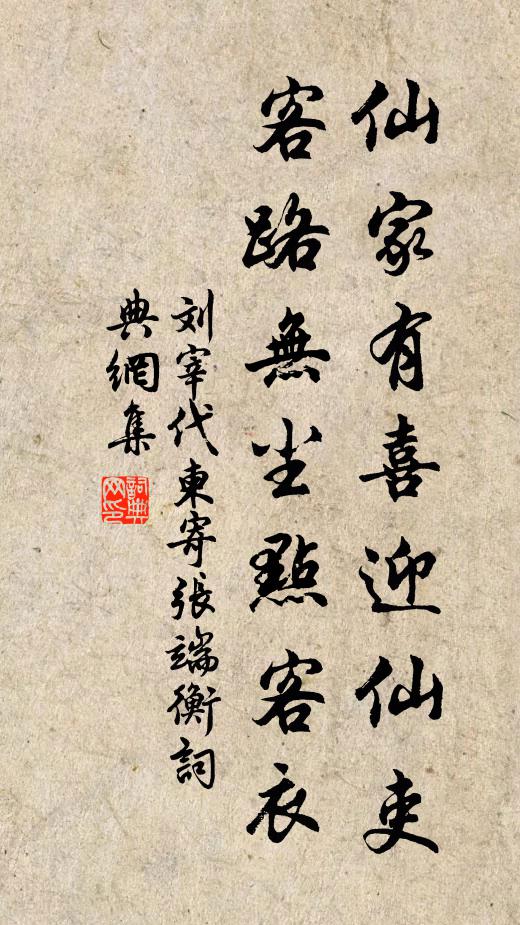 仙家有喜迎仙吏
客路無尘點客衣
刘宰代東寄張端衡詞
典網集
詞典
网印